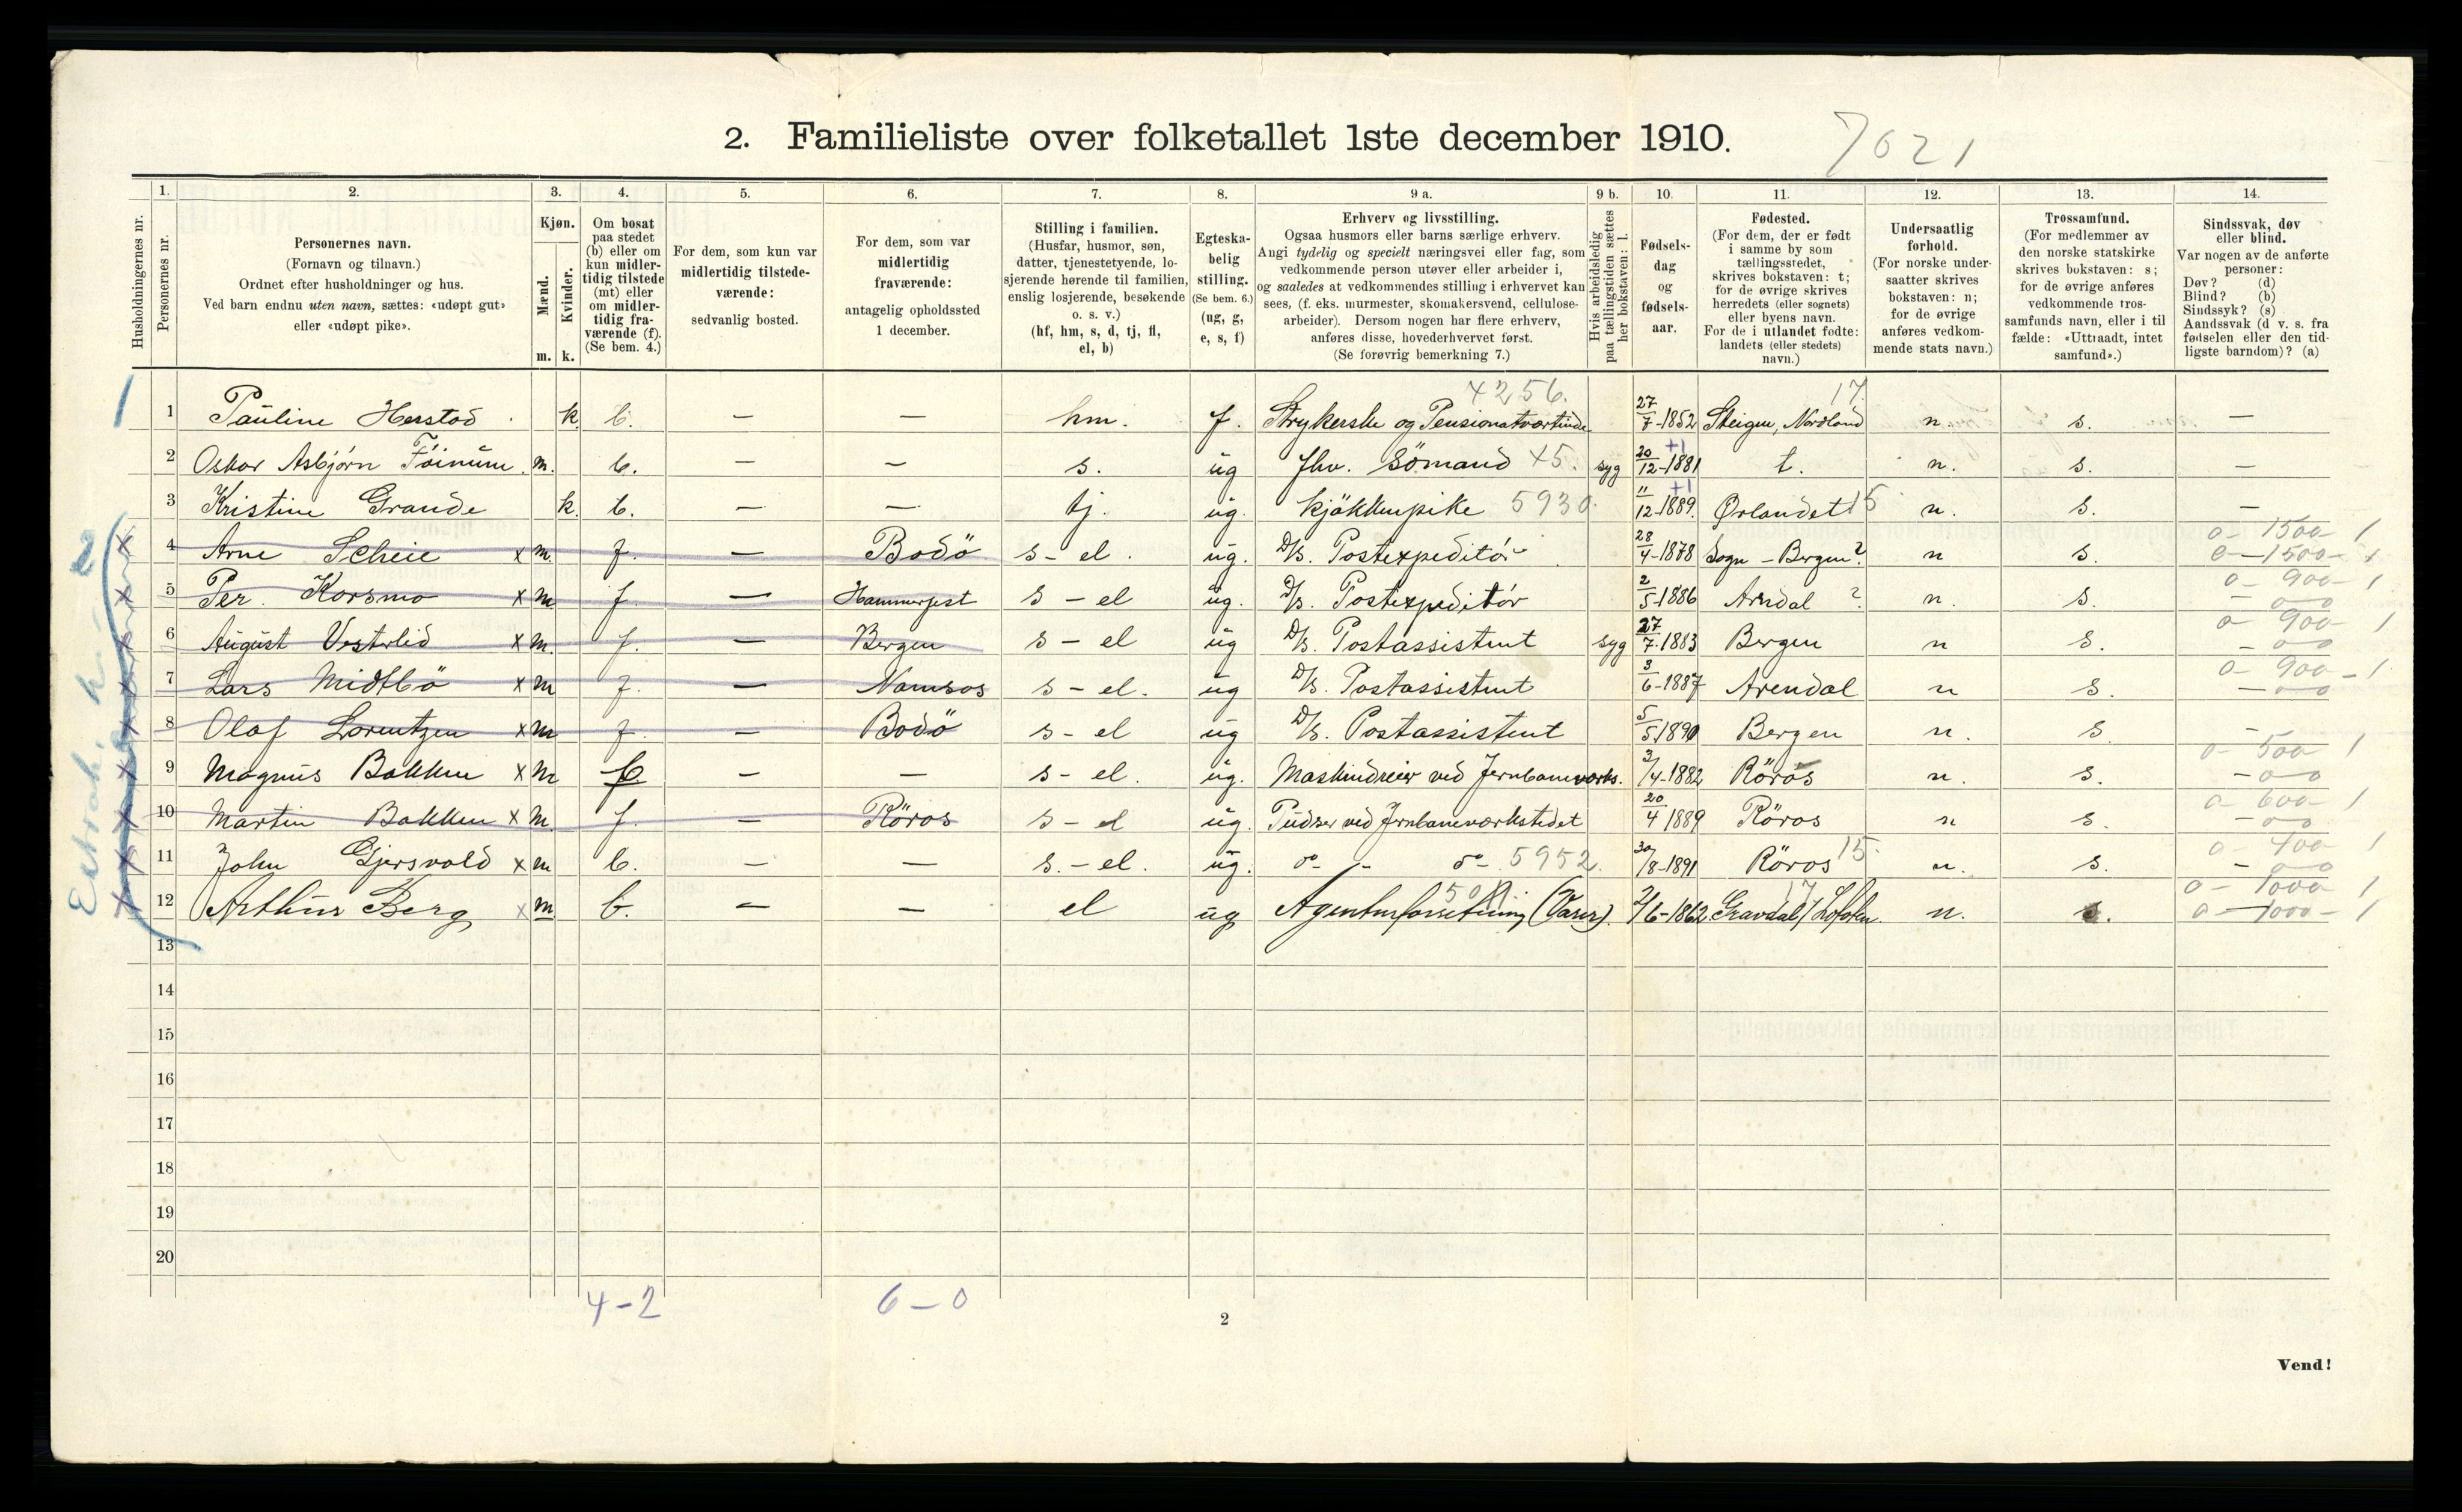 2. Familieliste over folketallet 1ste december 1910.
7021
1. 2. 3. 4. 5. 6. 7. 8. 9 a. 9 b. 10. 11. 12. 13. 14.
Husholdningernes nr.
Personernes nr.
Personernes navn.
(Fornavn og tilnavn.)
Ordnet efter husholdninger og hus.
Ved barn endnu uten navn, sættes: «udøpt gut»
eller «udøpt pike».
Kjøn.
Mænd.
Kvinder.
m. k.
Om bosat
paa stedet
(b) eller om
kun midler-
tidig tilstede
(mt) eller
om midler-
tidig fra-
værende (f).
(Se bem. 4.)
For dem, som kun var
midlertidig tilstede-
værende:
sedvanlig bosted.
For dem, som var
midlertidig
fraværende:
antagelig opholdssted
1 december.
Stilling i familien.
(Husfar, husmor, søn,
datter, tjenestetyende, lo-
sjerende hørende til familien,
enslig losjerende, besøkende
o. s. v.)
(hf, hm, s, d, tj, fl,
el, b)
Egteska-
belig
stilling.
(Se bem. 6.)
(ug, g,
e, s, f)
Erhverv og livsstilling.
Ogsaa husmors eller barns særlige erhverv.
Angi tydelig og specielt næringsvei eller fag, som
vedkommende person utøver eller arbeider i,
og saaledes at vedkommendes stilling i erhvervet kan
sees, (f. eks. murmester, skomakersvend, cellulose-
arbeider). Dersom nogen har flere erhverv,
anføres disse, hovederhvervet først.
(Se forøvrig bemerkning 7.)
Hvis arbeidsledig
paa tællingstiden sættes
her bokstaven: l.
Fødsels-
dag
og
fødsels-
aar.
Fødested.
(For dem, der er født
i samme by som
tællingsstedet,
skrives bokstaven: t;
for de øvrige skrives
herredets (eller sognets)
eller byens navn.
For de i utlandet fødte:
landets (eller stedets)
navn.)
Undersaatlig
forhold.
(For norske under-
saatter skrives
bokstaven: n;
for de øvrige
anføres vedkom-
mende stats navn.)
Trossamfund.
(For medlemmer av
den norske statskirke
skrives bokstaven: s;
for de øvrige anføres
vedkommende tros-
samfunds navn, eller i til-
fælde: «Uttraadt, intet
samfund».)
Sindssvak, døv
eller blind.
Var nogen av de anførte
personer:
Døv? (d)
Blind? (b)
Sindssyk? (s)
Aandssvak (d v. s. fra
fødselen eller den tid-
ligste barndom)? (a)
4256. 17.
1 1 Pauline Herstad k. b. — — hm. f. Strykerske og Pensionatværtinde 27/7-1852 Steigen, Nordland n. s. —
2 Oskar Asbjørn m. b. — — s. ug fhv. Sömand X5. syg 20/12-1881 +1 t. n. s. —
3 Kristine Grande k. b. — — tj. ug. kjökkenpike 5930. 11/12-1889. +1 Ørlandet 15 n. s. —
4 Arne Scheie x m. f. — Bodö s - el. ug. D/S. Postexpeditör 28/4-1878 Sogn - Bergen? n s. 0 - 1500 - 1
0 - 1500 - 1
5 Per Korsmo x m f. — Hammerfest s - el ug. D/S. Postexpeditör 2/5-1886 Arndal ? n. s. 0 - 900 - 1
- 0 0
6 August Vesterlid x m. f. — Bergen s - el ug D/S. Postassistent syg 27/7-1883 Bergen n s. 0 - 900 - 1
- 0 0
7 Lars Midtbö x m f. — Namsos s - el. ug D/S. Postassistent 3/6-1887 Arendal n s. 0 - 900 - 1
- 0 0
8 Olaf Lorentzen x m f. — Bodö s - el ug D/S. Postassistent 5/5 1890 Bergen n. s. —
9 Magnus Bakken x m — — s - el. ug. Maskindreier ved Jernbaneverks. 3/4-1882 Röros n. s. 0 - 500 1
- 0 0
10 Martin Bakken x m. f. — Röros s - el ug. Pudser ved Jernbaneverkstedet 20/4 1889 Röros n s. 0 - 600 - 1
- 0 0
11 John Gjersvold x m b. — — s. - el. ug. do - do 5952. 30/8-1891 Röros 15. n. s. 0 - 400 1
- 0 0
12 Arthur Berg x m b. — — el ug Agenturforretning (Varer). 2/6-1862 Gravdal, Lofoten. 17 n. s. 0 - 1000 1
0 - 1000 - 1
13
14
15
16
17
18
19
20
4-2 6-0
2
Vend!